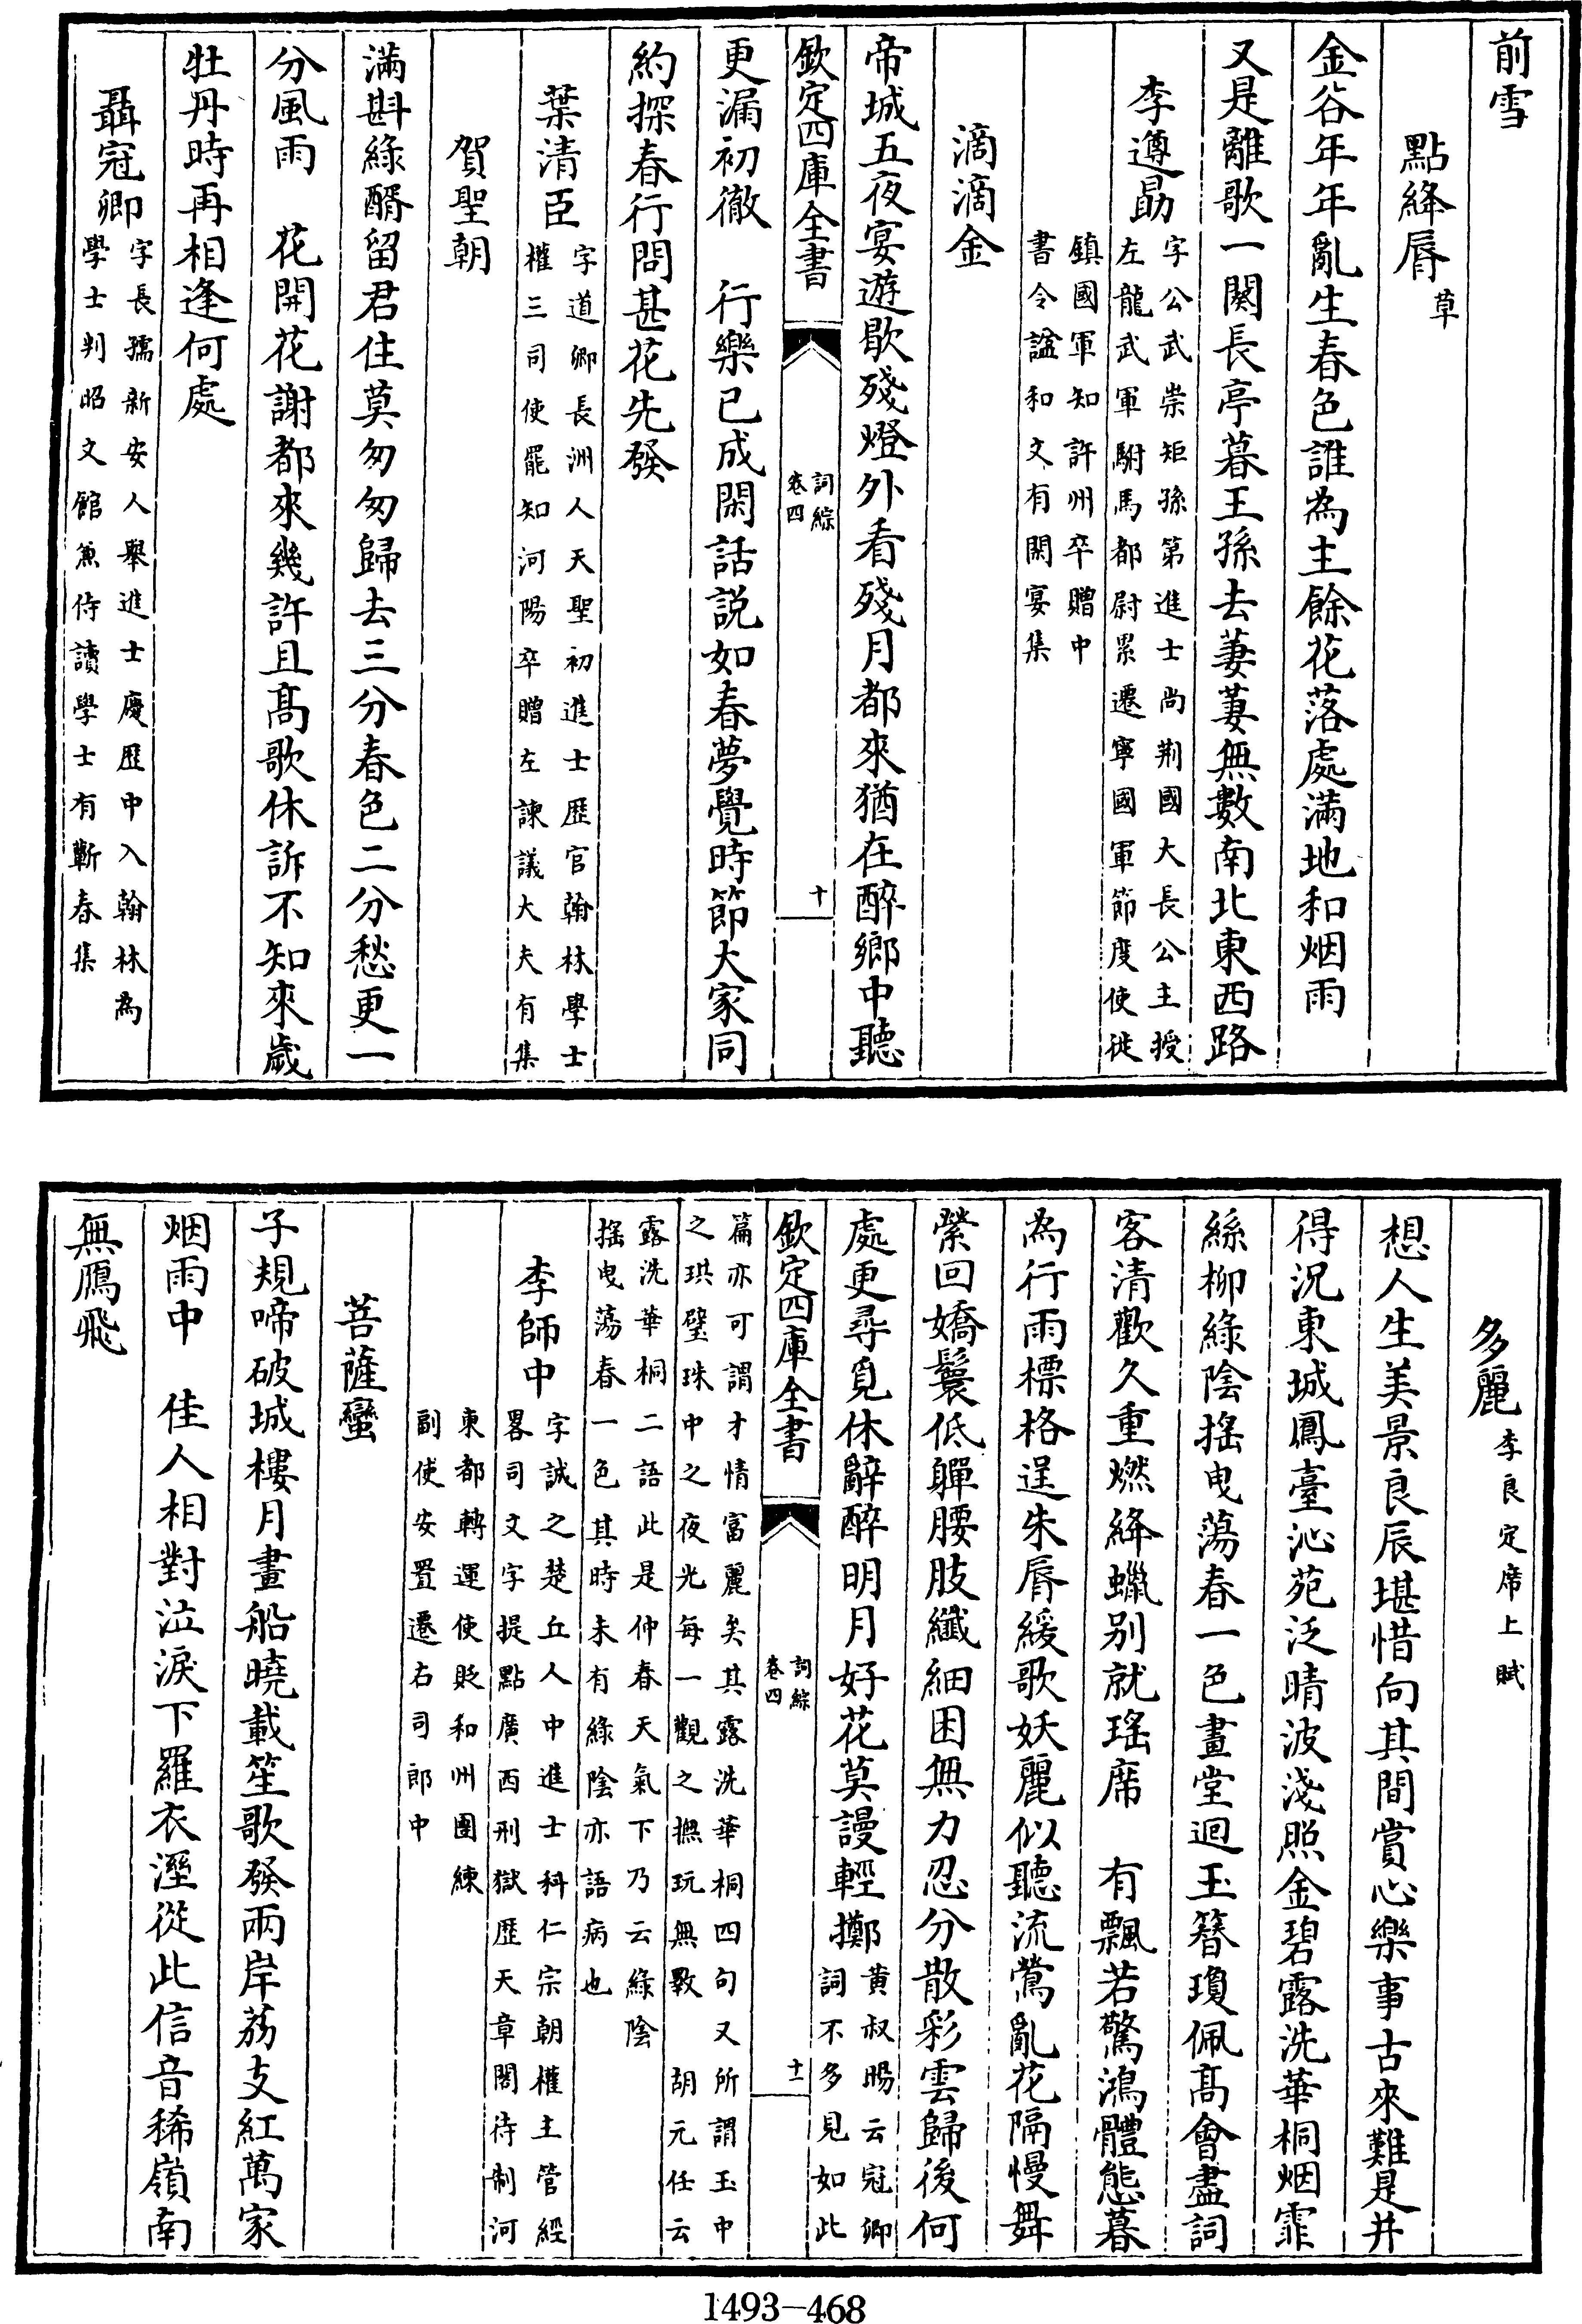 前雪
點絳脣草
金谷年年亂生春色誰為主餘花落處滿地和烟雨
又是離歌一闋長亭暮王孫去萋萋無數南北東西路
李遵勗字公武崇矩孫第進士尚荆國大長公主授
左龍武軍駙馬都尉累遷寧國軍節度使徙
鎮國軍知許州卒贈中
書令諡和文有閑宴集
滴滴金
帝城五夜宴遊歇殘燈外看殘月都來猶在醉鄉中聽
欽定四庫全書
詞綜
卷四
十
更漏初徹 行樂已成閑話説如春夢覺時節大家同
約探春行問甚花先發
葉清臣字道卿長洲人天聖初進士歴官翰林學士
權三司使罷知河陽卒贈左諫議大夫有集
賀聖朝
滿斟綠醑留君住莫匆匆歸去三分春色二分愁更一
分風雨 花開花謝都來幾許且高歌休訴不知來歲
牡丹時再相逢何處
聶冠卿字長孺新安人舉進士慶歴中入翰林為
學士判昭文館兼侍讀學士有蘄春集
多麗李良定席上賦
想人生美景良辰堪惜向其間賞心樂事古來難是并
得況東城鳳臺沁苑泛晴波淺照金碧露洗華桐烟霏
絲柳綠陰摇曳蕩春一色畫堂迥玉簪瓊佩高會盡詞
客清歡久重燃絳蠟别就瑤席 有飄若驚鴻體態暮
為行雨標格逞朱脣緩歌妖麗似聽流鶯亂花隔慢舞
縈回嬌鬟低嚲腰肢纖細困無力忍分散彩雲歸後何
處更尋覓休辭醉明月好花莫謾輕擲黄叔暘云冠卿
詞不多見如此
欽定四庫全書
詞綜
卷四
十一
篇亦可謂才情富麗矣其露洗華桐四句又所謂玉中
之珙璧珠中之夜光每一觀之撫玩無斁 胡元任云
露洗華桐二語此是仲春天氣下乃云綠陰
摇曳蕩春一色其時未有綠陰亦語病也
李師中字誠之楚丘人中進士科仁宗朝權主管經
畧司文字提點廣西刑獄歴天章閣待制河
東都轉運使貶和州團練
副使安置遷右司郎中
菩薩蠻
子規啼破城樓月畫船曉載笙歌發兩岸荔支紅萬家
烟雨中 佳人相對泣淚下羅衣溼從此信音稀嶺南
無鴈飛
1493—468